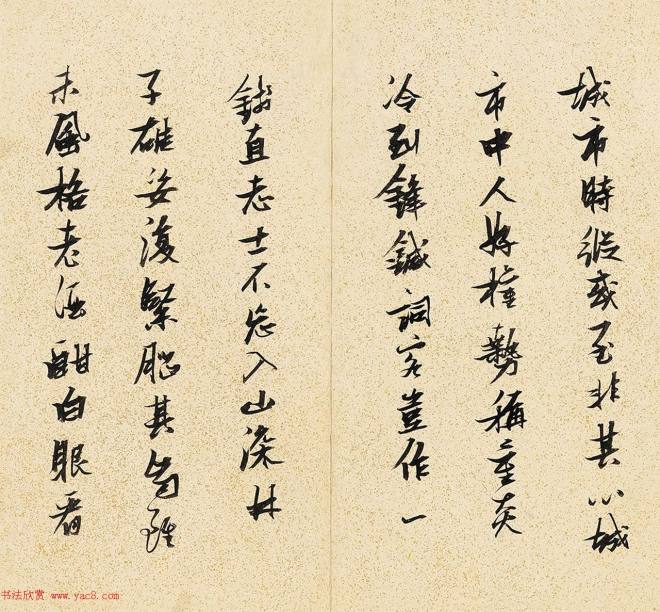 城市時縱或至非其心城
市中人好權勢稱重炎
冷到鋒詞客豈作一
錢直志士不入山深林
子雄姿復緊腦其句雖
未風格老酒酣白眼看
书法欣赏 www.yac8.com